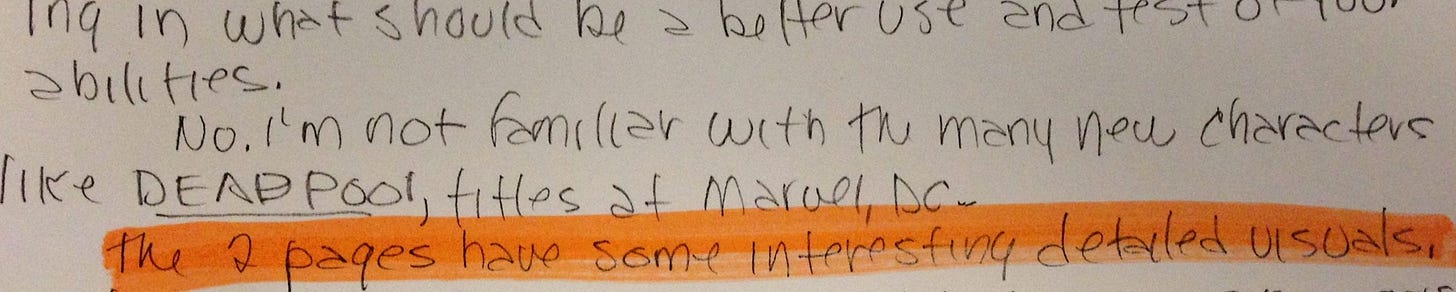 ing in what should be a better use and test of your
abilities.
No. I'm not familiar with the many new characters
like DEADPOOL, titles at Marvel, DC-
the 2 pages have some interesting detailed visuals.